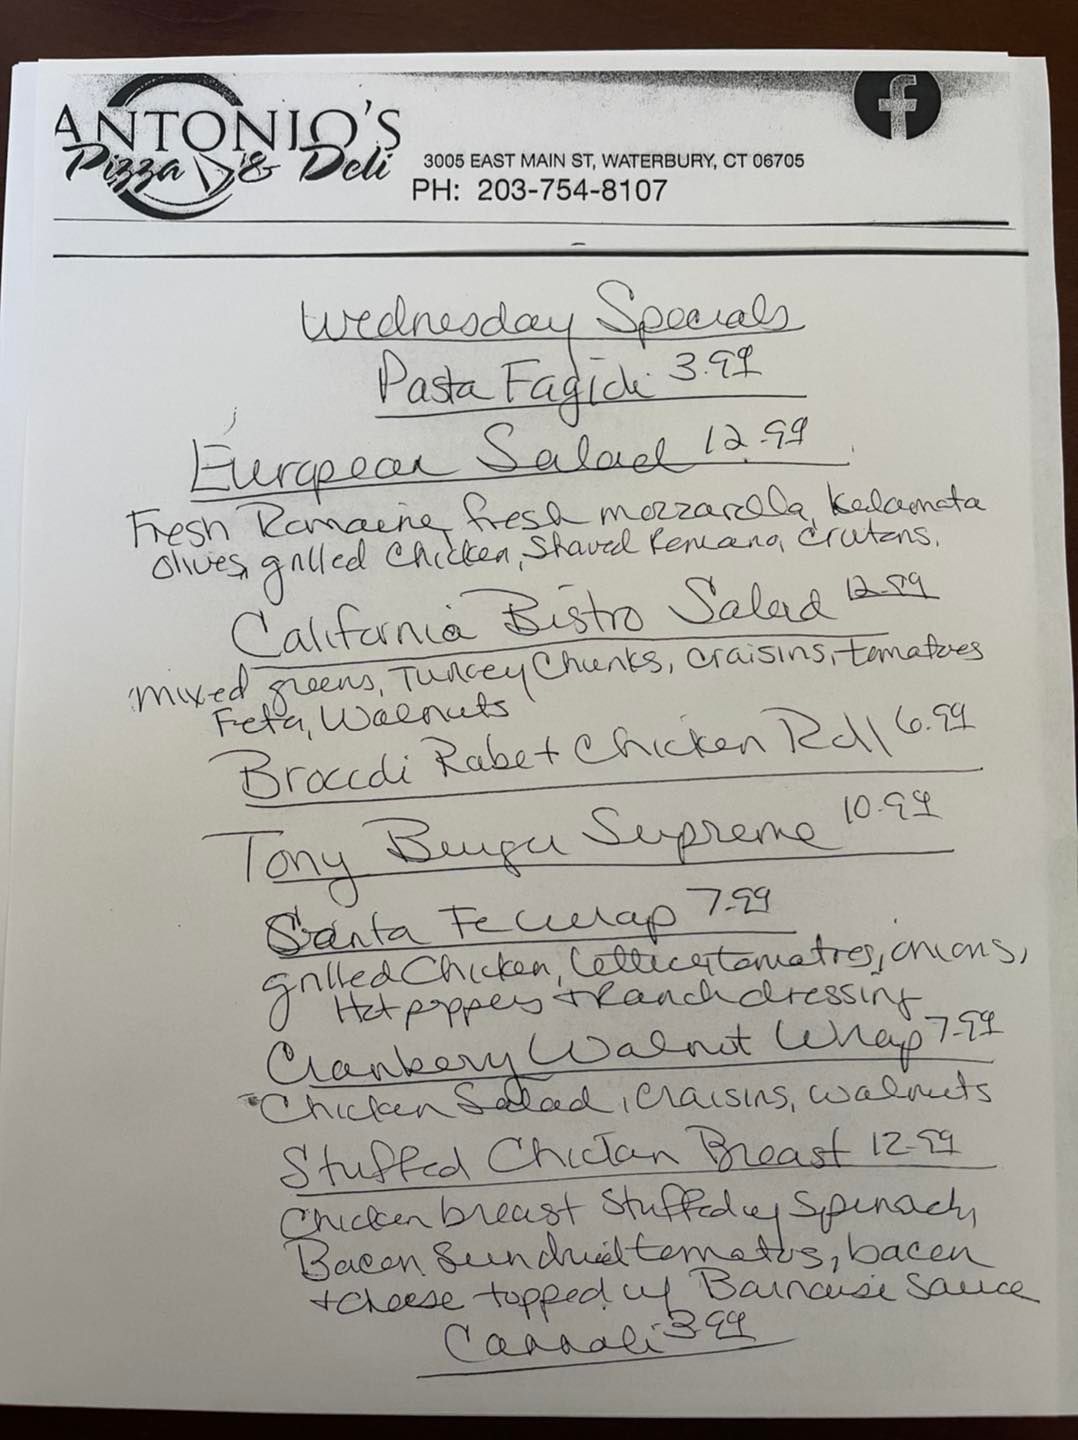 ANTONIO'S
Pizza & Deli
f
3005 EAST MAIN ST, WATERBURY, CT 06705
PH: 203-754-8107
Wednesday Specials
Pasta Fagioli 3.99
European Salad 12.99
Fresh Romaine, fresh mozzarella, Kalamata
olives, grilled Chicken, Shaved Romano, crutons.
California Bistro Salad 12.99
mixed greens, Turkey Chunks, craisins, tomatoes
Feta, Walnuts
Broccoli Rabe + Chicken Roll 6.99
Tony Burger Supreme 10.99
Santa Fe Wrap 7.99
grilled Chicken, lettuce, tomatoes, onions,
Hot peppers + Ranch dressing
Cranberry Walnut Wrap 7.99
Chicken Salad, craisins, walnuts
Stuffed Chicken Breast 12.99
Chicken breast Stuffed w/ Spinach,
Bacon Sundried tomatoes, bacon
+ cheese topped w/ Bairnaise Sauce
Cannoli 3.99